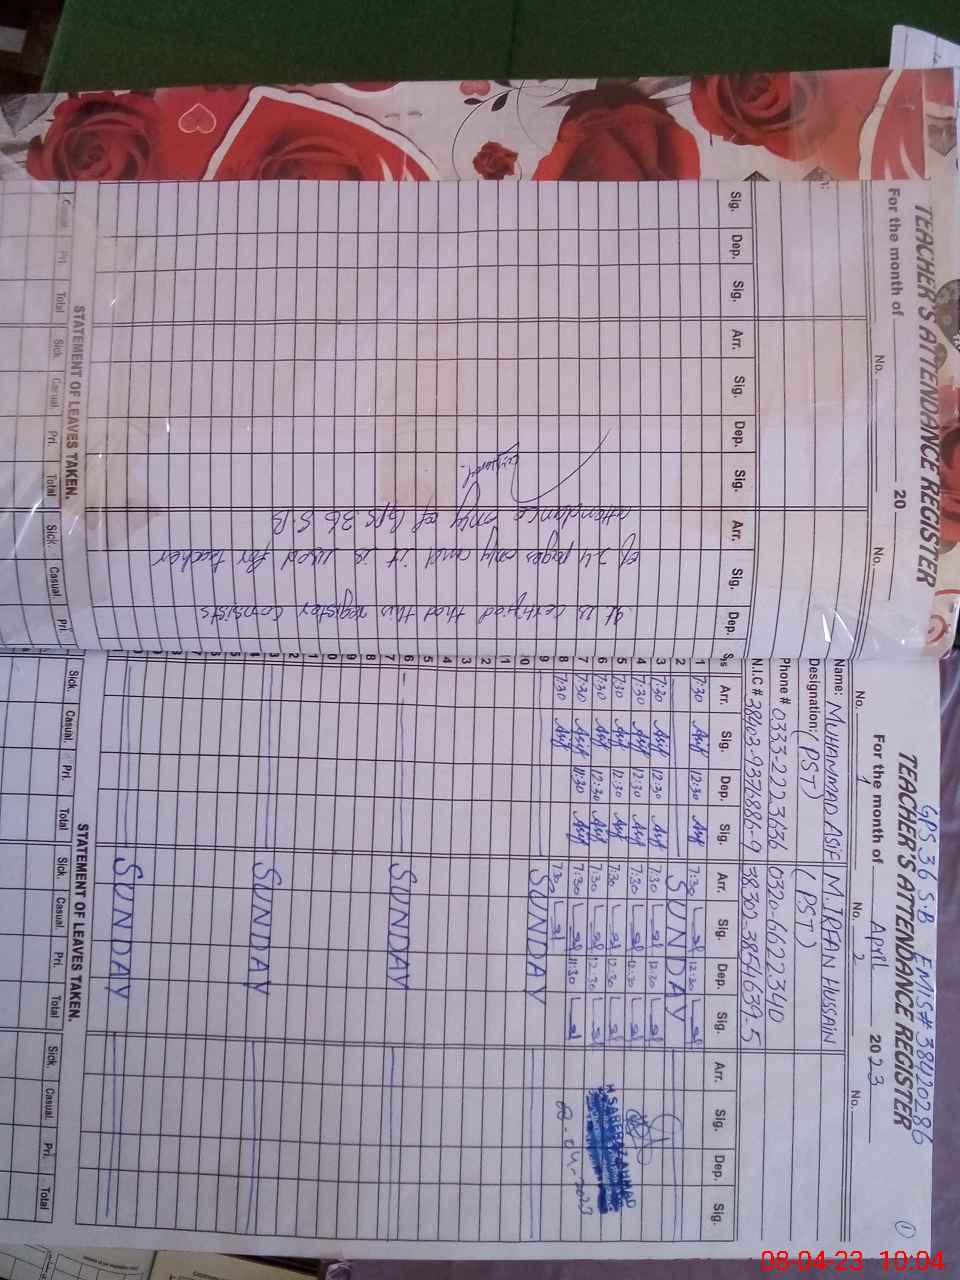 GPS 36 S.B EMIS# 38420286
1
TEACHER'S ATTENDANCE REGISTER
For the month of April 2023
No. 1 No. 2 No.
Name: MUHAMMAD ASIF M. IRFAN HUSSAIN
Designation: (PST) (PST)
Phone # 0333-2223636 0320-6622340
N.I.C # 38403-9376886-9 38302-3854639-5
Arr. Sig. Dep. Sig. Arr. Sig. Dep. Sig. Arr. Sig. Dep. Sig.
1 7:30 Asif 12:30 Asif 7:30 12:30
2 SUNDAY
3 7:30 Asif 12:30 Asif 7:30 12:30
4 7:30 Asif 12:30 Asif 7:30 12:30
5 7:30 Asif 12:30 Asif 7:30 12:30
6 7:30 Asif 12:30 Asif 7:30 12:30
7 7:30 Asif 11:30 Asif 7:30 11:30
8 7:30 Asif 7:30
9 SUNDAY
SARFRAZ AHMAD
08-04-2023
SUNDAY
SUNDAY
SUNDAY
STATEMENT OF LEAVES TAKEN.
Sick. Casual. Pri. Total Sick. Casual. Pri. Total Sick. Casual. Pri. Total
TEACHER'S ATTENDANCE REGISTER
For the month of 20
No. No.
Sig. Dep. Sig. Arr. Sig. Dep. Sig. Arr. Sig. Dep.
It is certified that this register consists
of 24 pages only and it is used for teacher
attendance only of GPS 36 S.B
STATEMENT OF LEAVES TAKEN.
Casual. Pri. Total Sick. Casual. Pri. Total Sick. Casual. Pri.
08-04-23 10:04